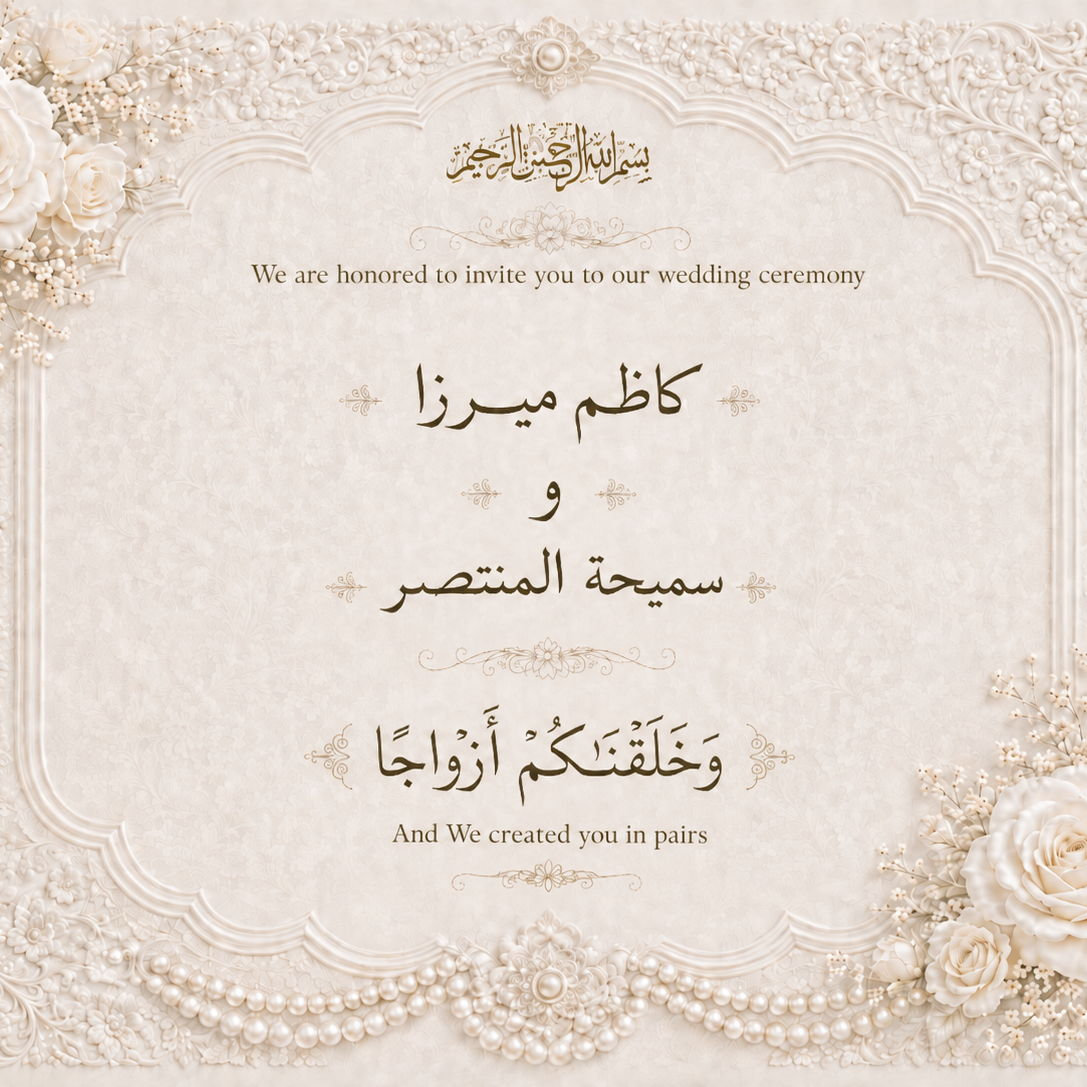 بسم الله الرحمن الرحيم
We are honored to invite you to our wedding ceremony
كاظم ميـرزا
و
سميحة المنتصر
وَخَلَقْنَـٰكُمْ أَزْوَاجًا
And We created you in pairs